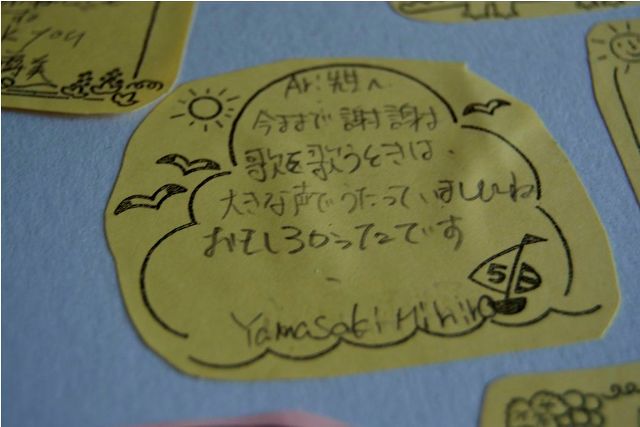 you
Ari 先生へ
今まで 謝謝
歌を歌うときは、
大きな声でうたっていましたね
おもしろかったです
Yamasaki Hihiro
5